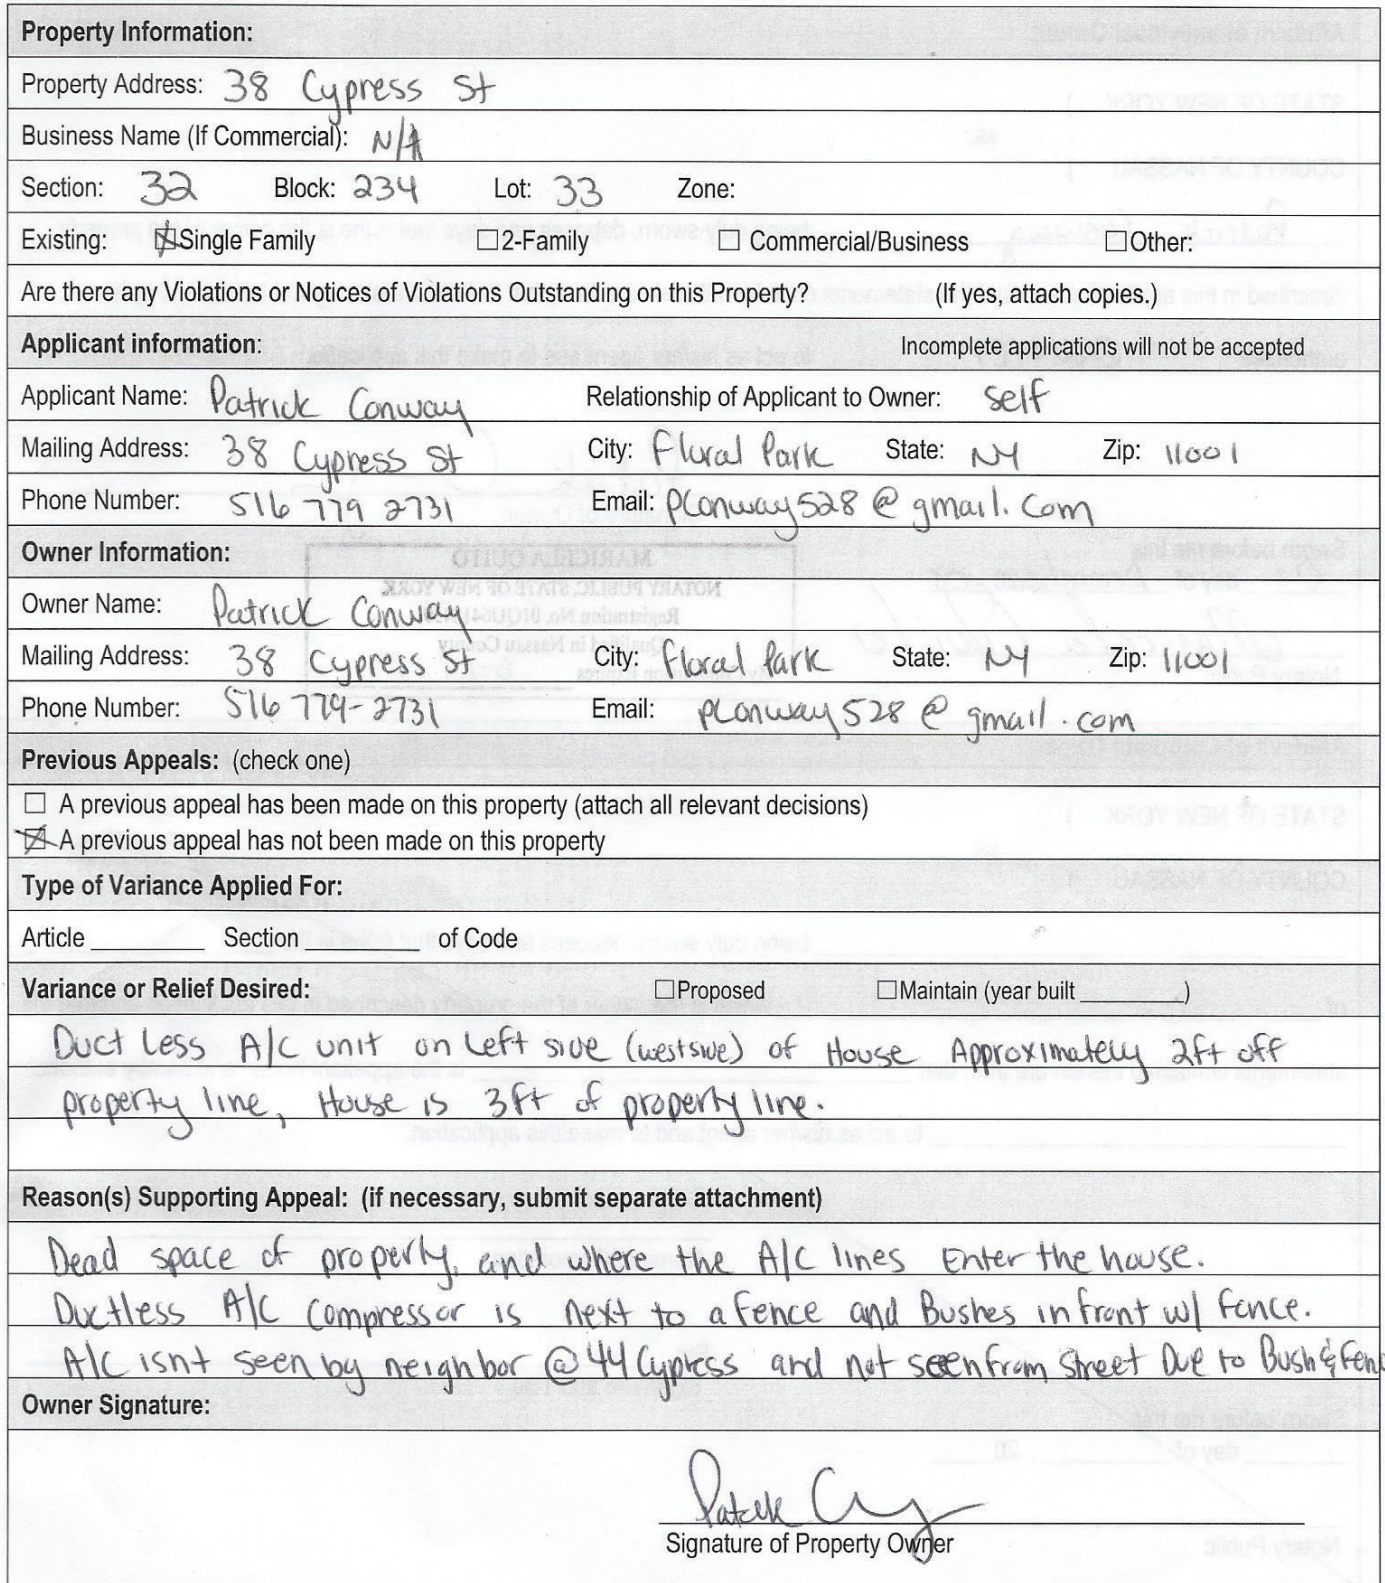 Property Information:
Property Address: 38 Cypress St
Business Name (If Commercial): N/A
Section: 32 Block: 234 Lot: 33 Zone:
Existing: ☒Single Family ☐2-Family ☐ Commercial/Business ☐Other:
Are there any Violations or Notices of Violations Outstanding on this Property? (If yes, attach copies.)
Applicant information: Incomplete applications will not be accepted
Applicant Name: Patrick Conway Relationship of Applicant to Owner: Self
Mailing Address: 38 Cypress St City: Floral Park State: NY Zip: 11001
Phone Number: 516 779 2731 Email: pconway528@gmail.com
Owner Information:
Owner Name: Patrick Conway
Mailing Address: 38 Cypress St City: Floral Park State: NY Zip: 11001
Phone Number: 516 779-2731 Email: pconway528@gmail.com
Previous Appeals: (check one)
☐ A previous appeal has been made on this property (attach all relevant decisions)
☒ A previous appeal has not been made on this property
Type of Variance Applied For:
Article ________ Section ________ of Code
Variance or Relief Desired: ☐Proposed ☐Maintain (year built ________)
Ductless A/C unit on left side (westside) of House Approximately 2ft off
property line, House is 3ft of property line.
Reason(s) Supporting Appeal: (if necessary, submit separate attachment)
Dead space of property, and where the A/C lines Enter the house.
Ductless A/C compressor is next to a fence and Bushes in front w/ fence.
A/C isnt seen by neighbor @ 44 Cypress and not seen from Street Due to Bush & fenc
Owner Signature:
Patrick Conway
Signature of Property Owner